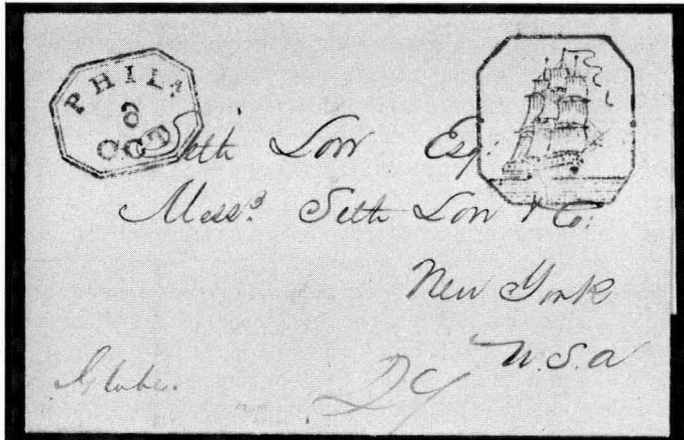 PHILA
6
OCT
Seth Low Esq:
Mess.rs Seth Low & Co:
New York
U.S.a
Globe.